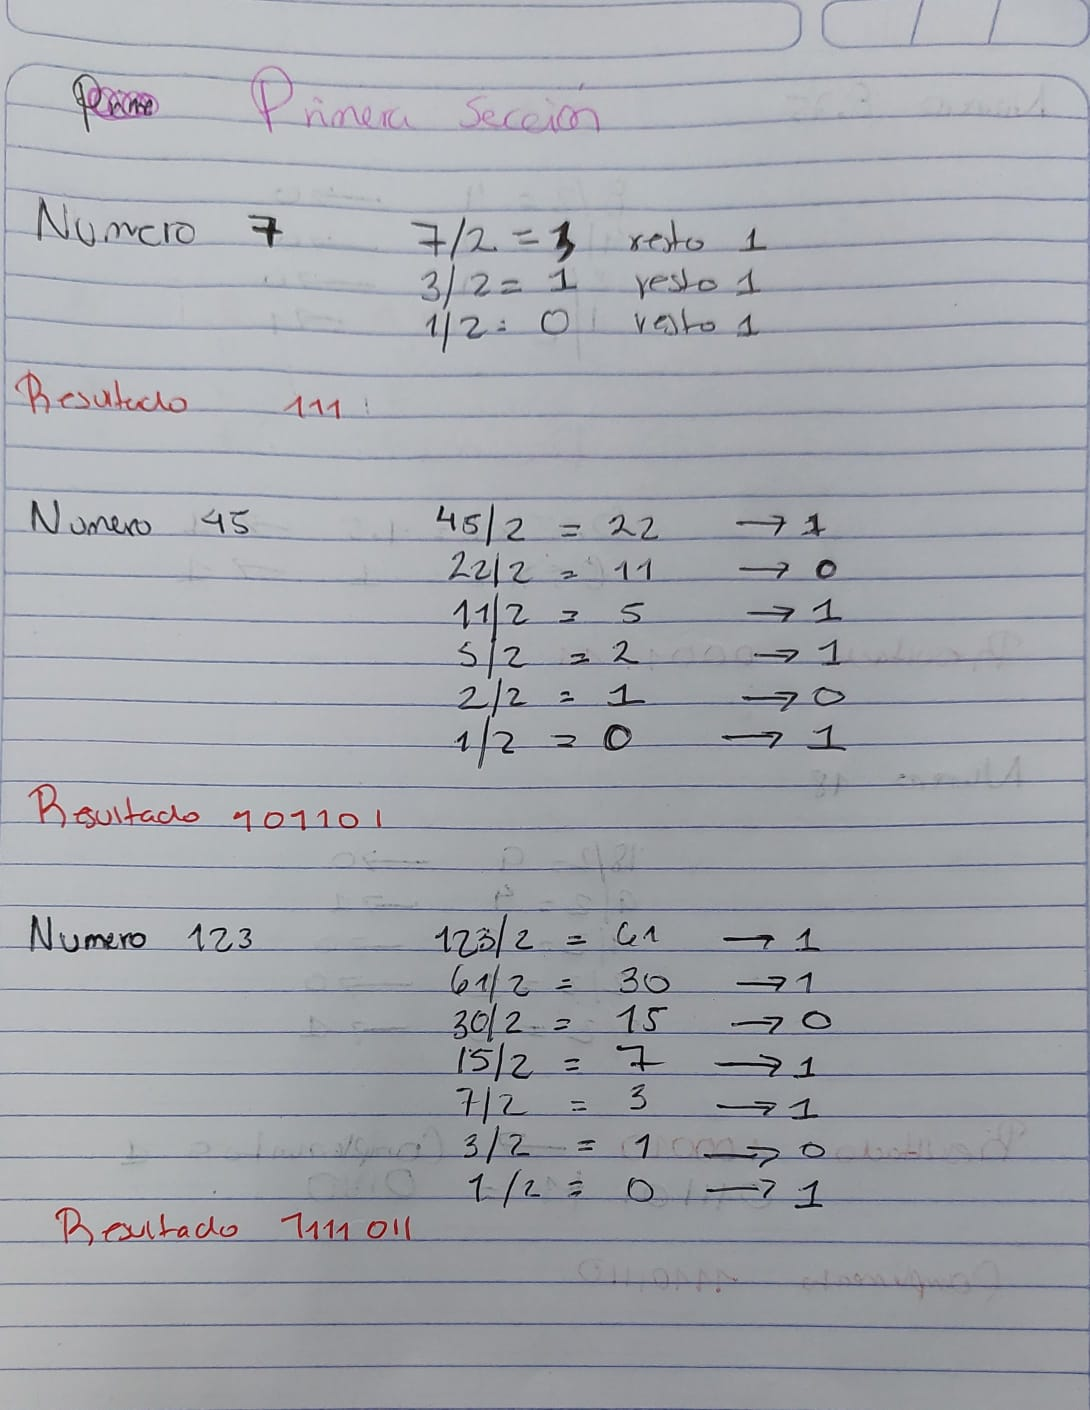 Primera Sección
Numero 7 7/2 = 3 resto 1
3/2 = 1 resto 1
1/2 = 0 resto 1
Resultado 111
Numero 45 45/2 = 22 → 1
22/2 = 11 → 0
11/2 = 5 → 1
5/2 = 2 → 1
2/2 = 1 → 0
1/2 = 0 → 1
Resultado 101101
Numero 123 123/2 = 61 → 1
61/2 = 30 → 1
30/2 = 15 → 0
15/2 = 7 → 1
7/2 = 3 → 1
3/2 = 1 → 0
1/2 = 0 → 1
Resultado 1111011